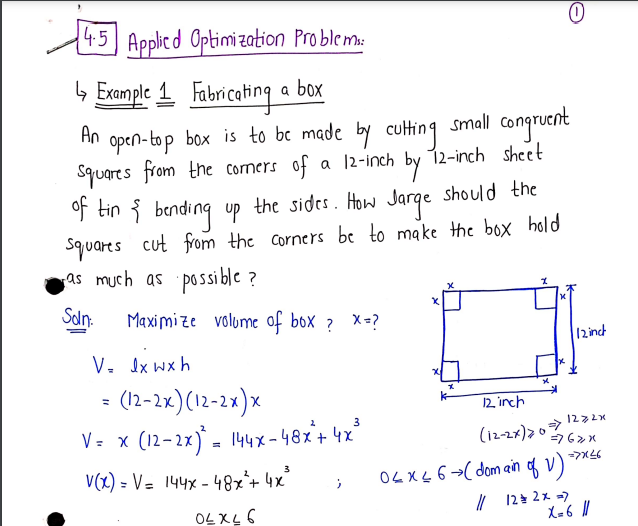 ①
4.5 Applied Optimization Problems:
↳ Example 1 Fabricating a box
An open-top box is to be made by cutting small congruent
squares from the corners of a 12-inch by 12-inch sheet
of tin & bending up the sides. How large should the
squares cut from the corners be to make the box hold
as much as possible?
Soln: Maximize volume of box ? x=?
V = l x w x h
= (12-2x)(12-2x)x
V = x (12-2x)² = 144x - 48x² + 4x³
V(x) = V = 144x - 48x² + 4x³ ;
0≤x≤6
x x
x x
12 inch
x x
x x
12 inch
(12-2x)≥0 ⇒ 12≥2x
⇒ 6≥x
⇒ x≤6
0≤x≤6 → (domain of V)
// 12≥2x ⇒
x=6 //